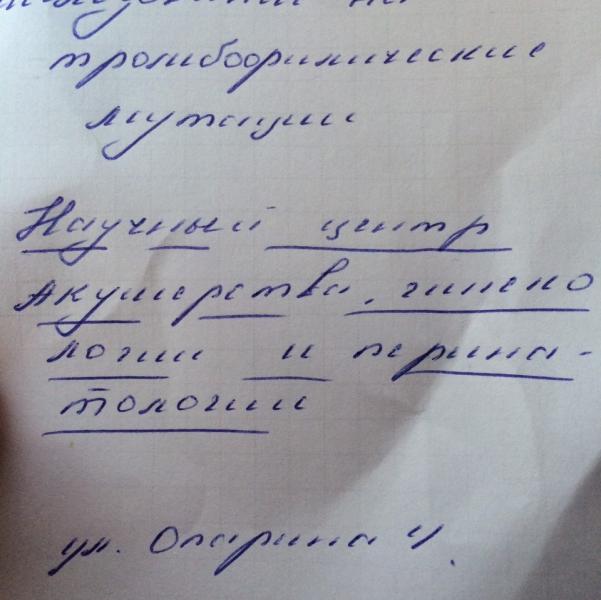 на
тромбофилические
мутации
Научный центр
Акушерства, гинеко
логии и перина-
тологии
ул. Опарина 4.